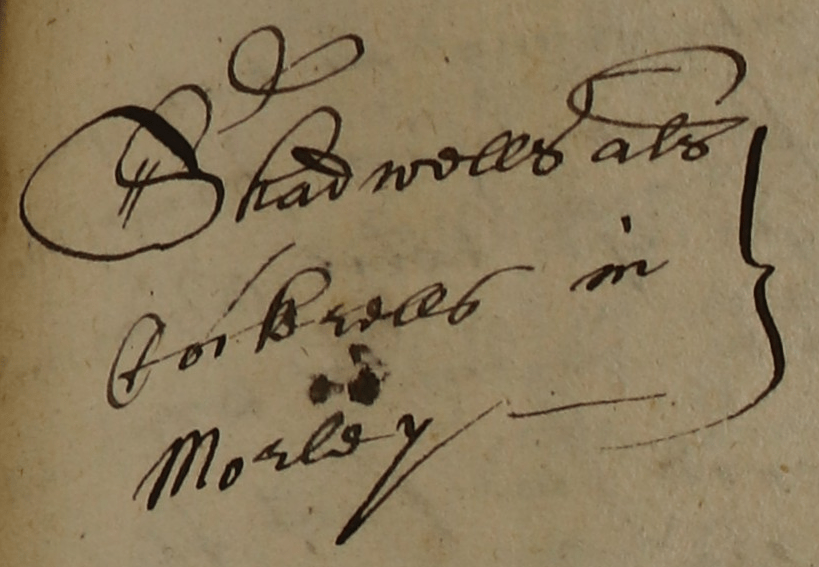 Shadwells als
Cockrells in
Morley